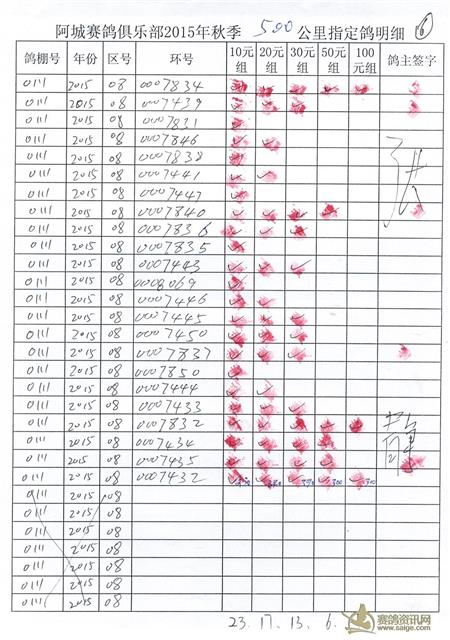 阿城赛鸽俱乐部2015年秋季 500 公里指定鸽明细 ⑥
鸽棚号 年份 区号 环号 10元组 20元组 30元组 50元组 100元组 鸽主签字
0111 2015 08 0007834
0111 2015 08 0007439
0111 2015 08 0007831
0111 2015 08 0007846
0111 2015 08 0007838
0111 2015 08 0007441
0111 2015 08 0007447
0111 2015 08 0007840
0111 2015 08 0007836
0111 2015 08 0007835
0111 2015 08 0007443
0111 2015 08 0008069
0111 2015 08 0007446
0111 2015 08 0007445
0111 2015 08 0007450
0111 2015 08 0007837
0111 2015 08 0007850
0111 2015 08 0007444
0111 2015 08 0007433
0111 2015 08 0007832
0111 2015 08 0007434
0111 2015 08 0007435
0111 2015 08 0007432
0111 2015 08
0111 2015 08
0111 2015 08
0111 2015 08
0111 2015 08
0111 2015 08
0111 2015 08
23. 17. 13. 6.
赛鸽资讯网
www.saige.com